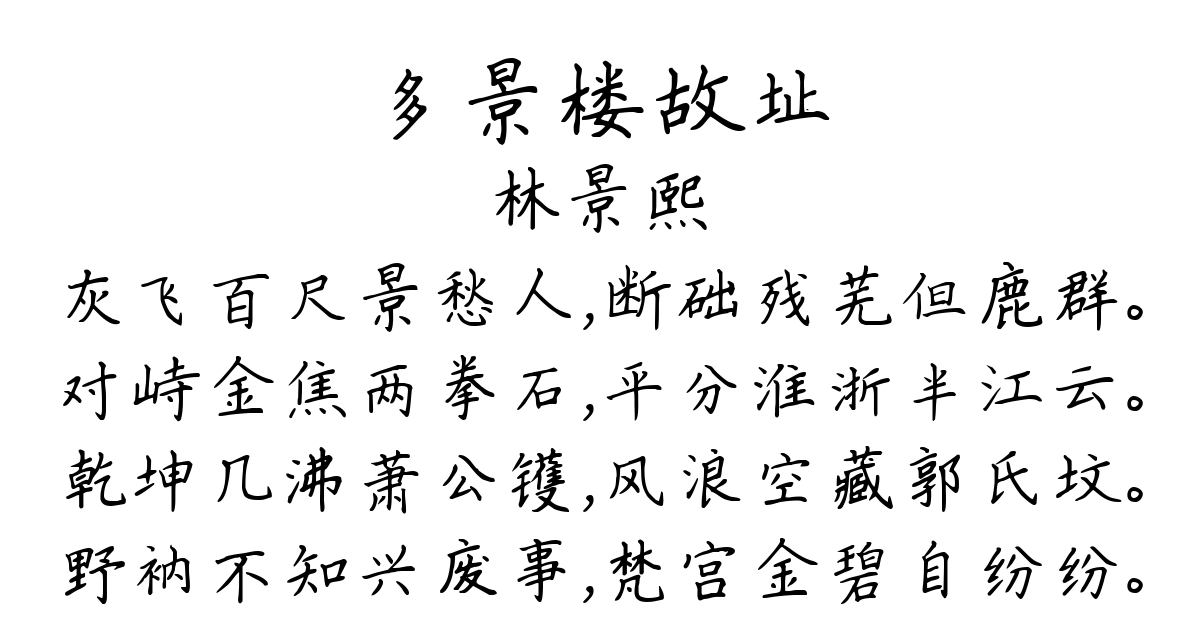 多景楼故址
林景熙
灰飞百尺景愁人,断础残芜但鹿群。
对峙金焦两拳石,平分淮浙半江云。
乾坤几沸萧公镬,风浪空藏郭氏坟。
野衲不知兴废事,梵宫金碧自纷纷。